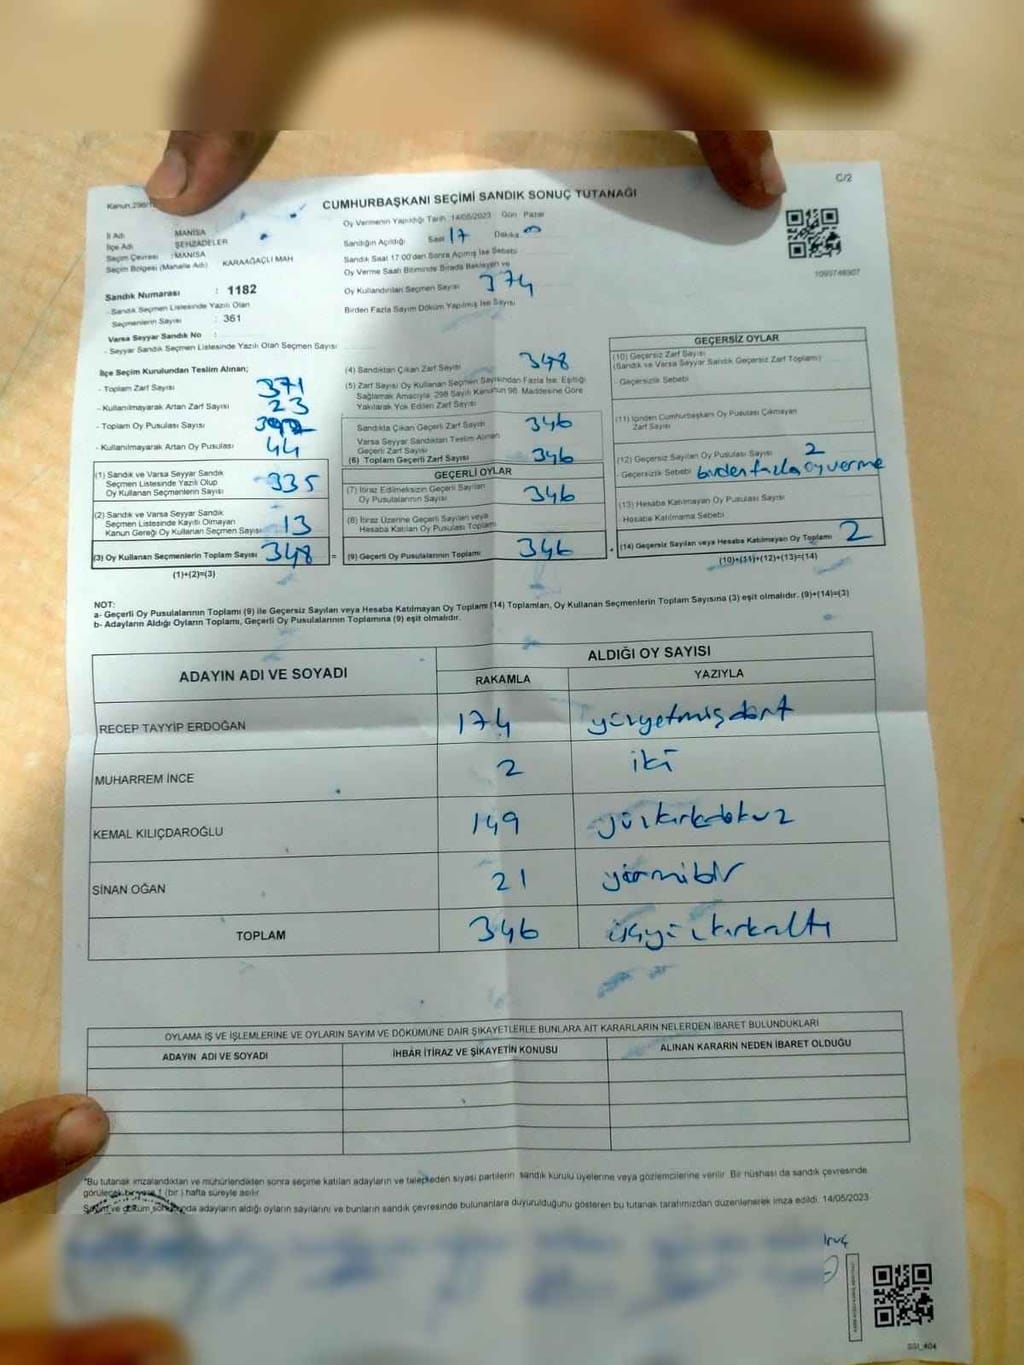 C/2
Kanun:298/1
CUMHURBAŞKANI SEÇİMİ SANDIK SONUÇ TUTANAĞI
İl Adı : MANİSA
İlçe Adı : ŞEHZADELER
Seçim Çevresi : MANİSA
Seçim Bölgesi (Mahalle Adı) : KARAAĞAÇLI MAH
Sandık Numarası : 1182
- Sandık Seçmen Listesinde Yazılı Olan
Seçmenlerin Sayısı : 361
Varsa Seyyar Sandık No :
- Seyyar Sandık Seçmen Listesinde Yazılı Olan Seçmen Sayısı
Oy Vermenin Yapıldığı Tarih: 14/05/2023 Gün Pazar
Sandığın Açıldığı Saat 17 Dakika
Sandık Saat 17.00'den Sonra Açılmış İse Sebebi
Oy Verme Saati Bitiminde Sırada Bekleyen ve
Oy Kullandırılan Seçmen Sayısı 374
Birden Fazla Sayım Döküm Yapılmış İse Sayısı
1099746907
İlçe Seçim Kurulundan Teslim Alınan;
- Toplam Zarf Sayısı 371
- Kullanılmayarak Artan Zarf Sayısı 23
- Toplam Oy Pusulası Sayısı
- Kullanılmayarak Artan Oy Pusulası 44
(1) Sandık ve Varsa Seyyar Sandık
Seçmen Listesinde Yazılı Olup
Oy Kullanan Seçmenlerin Sayısı 335
(2) Sandık ve Varsa Seyyar Sandık
Seçmen Listesinde Kayıtlı Olmayan
Kanun Gereği Oy Kullanan Seçmen Sayısı 13
(3) Oy Kullanan Seçmenlerin Toplam Sayısı 348 =
(1)+(2)=(3)
(4) Sandıktan Çıkan Zarf Sayısı 348
(5) Zarf Sayısı Oy Kullanan Seçmen Sayısından Fazla İse, Eşitliği
Sağlamak Amacıyla, 298 Sayılı Kanunun 98. Maddesine Göre
Yakılarak Yok Edilen Zarf Sayısı
Sandıkta Çıkan Geçerli Zarf Sayısı 346
Varsa Seyyar Sandıktan Teslim Alınan
Geçerli Zarf Sayısı
(6) Toplam Geçerli Zarf Sayısı 346
GEÇERLİ OYLAR
(7) İtiraz Edilmeksizin Geçerli Sayılan
Oy Pusulalarının Sayısı 346
(8) İtiraz Üzerine Geçerli Sayılan veya
Hesaba Katılan Oy Pusulası Toplamı
(9) Geçerli Oy Pusulalarının Toplamı 346 +
GEÇERSİZ OYLAR
(10) Geçersiz Zarf Sayısı
(Sandık ve Varsa Seyyar Sandık Geçersiz Zarf Toplamı)
- Geçersizlik Sebebi
(11) İçinden Cumhurbaşkanı Oy Pusulası Çıkmayan
Zarf Sayısı
(12) Geçersiz Sayılan Oy Pusulası Sayısı 2
Geçersizlik Sebebi birden fazla oy verme
(13) Hesaba Katılmayan Oy Pusulası Sayısı
Hesaba Katılmama Sebebi
(14) Geçersiz Sayılan veya Hesaba Katılmayan Oy Toplamı 2
(10)+(11)+(12)+(13)=(14)
NOT:
a- Geçerli Oy Pusulalarının Toplamı (9) ile Geçersiz Sayılan veya Hesaba Katılmayan Oy Toplamı (14) Toplamları, Oy Kullanan Seçmenlerin Toplam Sayısına (3) eşit olmalıdır. (9)+(14)=(3)
b- Adayların Aldığı Oyların Toplamı, Geçerli Oy Pusulalarının Toplamına (9) eşit olmalıdır.
ADAYIN ADI VE SOYADI
ALDIĞI OY SAYISI
RAKAMLA YAZIYLA
RECEP TAYYİP ERDOĞAN 174 yüzyetmişdört
MUHARREM İNCE 2 iki
KEMAL KILIÇDAROĞLU 149 yüzkırkdokuz
SİNAN OĞAN 21 yirmibir
TOPLAM 346 üçyüzkırkaltı
OYLAMA İŞ VE İŞLEMLERİNE VE OYLARIN SAYIM VE DÖKÜMÜNE DAİR ŞİKAYETLERLE BUNLARA AİT KARARLARIN NELERDEN İBARET BULUNDUKLARI
ADAYIN ADI VE SOYADI
İHBAR İTİRAZ VE ŞİKAYETİN KONUSU
ALINAN KARARIN NEDEN İBARET OLDUĞU
*Bu tutanak imzalandıktan ve mühürlendikten sonra seçime katılan adayların ve talep eden siyasi partilerin sandık kurulu üyelerine veya gözlemcilerine verilir. Bir nüshası da sandık çevresinde
görülecek bir yere 1 (bir ) hafta süreyle asılır.
Sayım ve döküm sonunda adayların aldığı oyların sayılarını ve bunların sandık çevresinde bulunanlara duyurulduğunu gösteren bu tutanak tarafımızdan düzenlenerek imza edildi. 14/05/2023